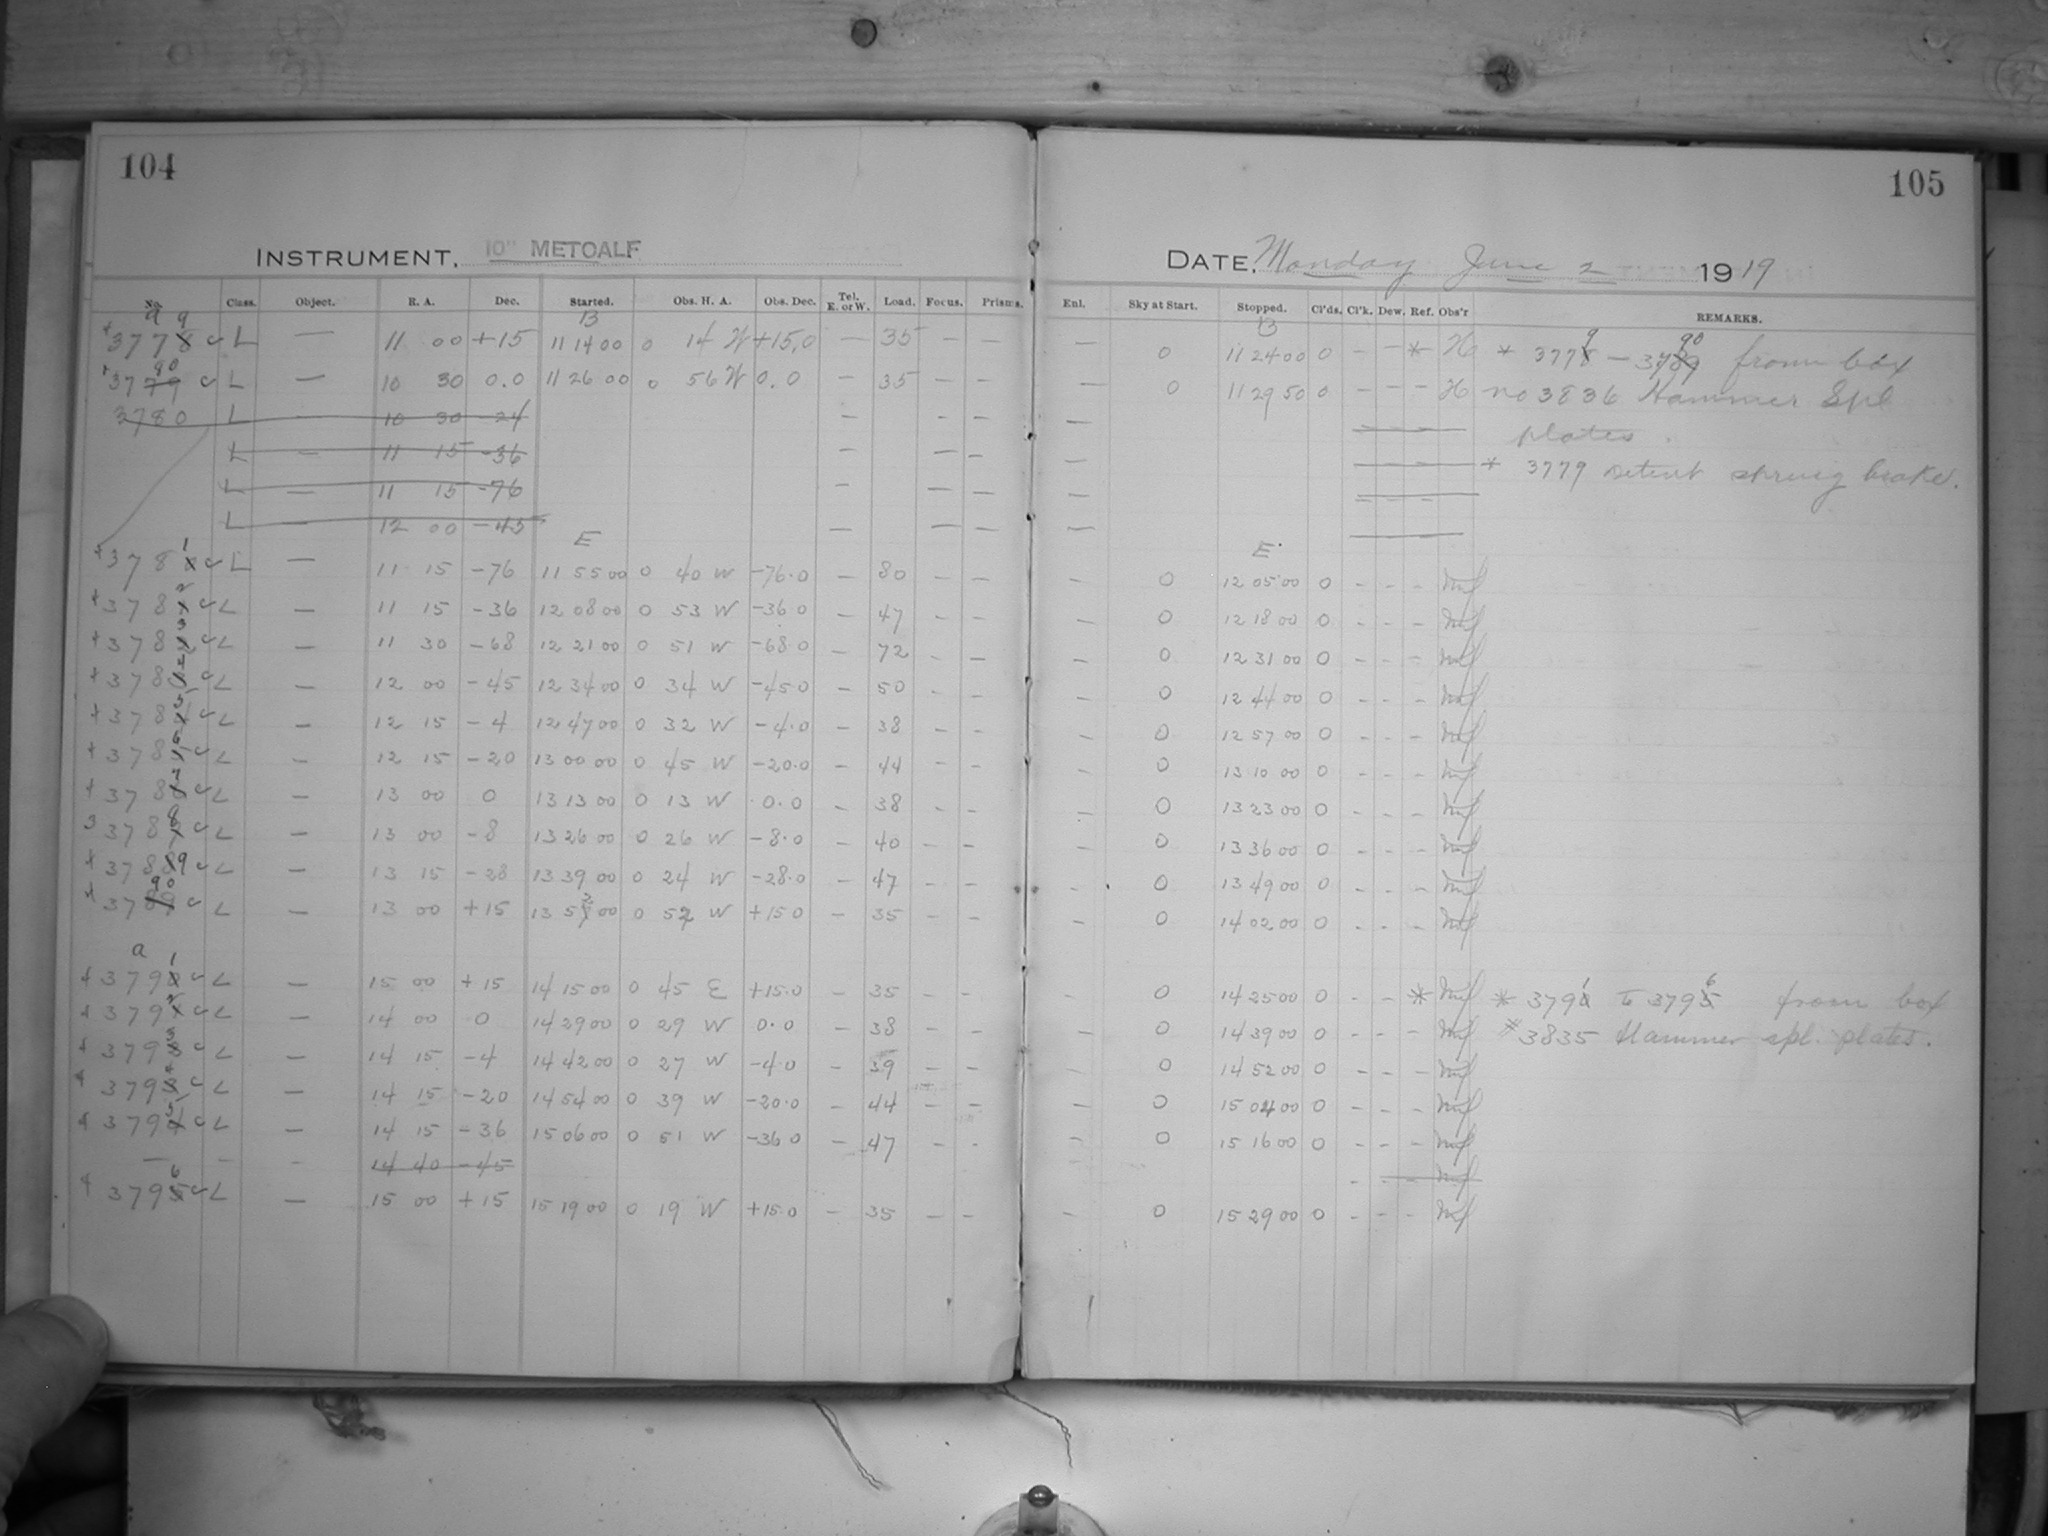 104
105
INSTRUMENT, 10" METCALF
DATE, Monday June 2 1919
No. Class. Object. R. A. Dec. Started. Obs. H. A. Obs. Dec. Tel. E. or W. Load. Focus. Prisms. Enl. Sky at Start. Stopped. Cl'ds. Cl'k. Dew. Ref. Obs'r REMARKS.
B B
3779 L — 11 00 +15 11 14 00 0 14 W +15.0 — 35 — — — 0 11 24 00 0 - - * H * 3779 — 3790 from box
3780 L — 10 30 0.0 11 26 00 0 56 W 0.0 — 35 — — — 0 11 29 50 0 - - - H no 3836 Hammer Spl
3780 L — 10 30 -24 — — — — plates.
L — 11 15 -36 — — — — * 3779 Detent spring broke.
L — 11 15 -76 — — — —
L — 12 00 -45 — — — —
E E
3781 L — 11 15 -76 11 55 00 0 40 W -76.0 — 80 — — — 0 12 05 00 0 - - -
3782 L — 11 15 -36 12 08 00 0 53 W -36 0 — 47 — — — 0 12 18 00 0 - - -
3783 L — 11 30 -68 12 21 00 0 51 W -68 0 — 72 — — — 0 12 31 00 0 - - -
3784 L — 12 00 -45 12 34 00 0 34 W -45 0 — 50 — — — 0 12 44 00 0 - - -
3785 L — 12 15 -4 12 47 00 0 32 W -4.0 — 38 — — — 0 12 57 00 0 - - -
3786 L — 12 15 -20 13 00 00 0 45 W -20.0 — 44 — — — 0 13 10 00 0 - - -
3787 L — 13 00 0 13 13 00 0 13 W 0.0 — 38 — — — 0 13 23 00 0 - - -
3788 L — 13 00 -8 13 26 00 0 26 W -8.0 — 40 — — — 0 13 36 00 0 - - -
3789 L — 13 15 -28 13 39 00 0 24 W -28.0 — 47 — — — 0 13 49 00 0 - - -
3790 L — 13 00 +15 13 52 00 0 52 W +15 0 — 35 — — — 0 14 02 00 0 - - -
a
3791 L — 15 00 +15 14 15 00 0 45 E +15.0 — 35 — — — 0 14 25 00 0 - - * * 3791 to 3796 from box
3792 L — 14 00 0 14 29 00 0 29 W 0.0 — 38 — — — 0 14 39 00 0 - - - #3835 Hammer spl. plates.
3793 L — 14 15 -4 14 42 00 0 27 W -4.0 — 39 — — — 0 14 52 00 0 - - -
3794 L — 14 15 -20 14 54 00 0 39 W -20.0 — 44 — — — 0 15 04 00 0 - - -
3795 L — 14 15 -36 15 06 00 0 51 W -36 0 — 47 — — — 0 15 16 00 0 - - -
— — - 14 40 -45
3796 L — 15 00 +15 15 19 00 0 19 W +15.0 — 35 — — — 0 15 29 00 0 - - -